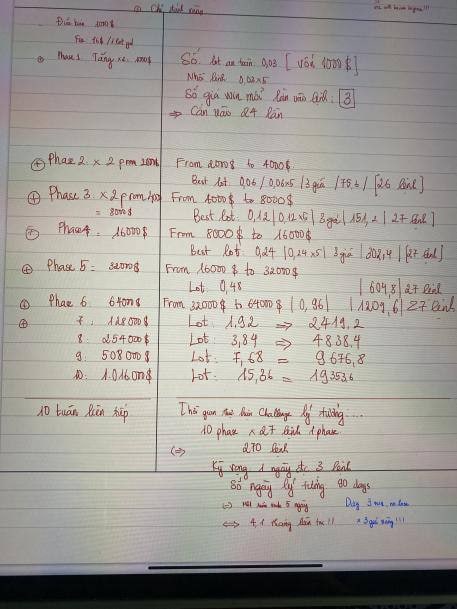 ① Chỉ đánh vàng
1000$
Fee 16$ / 1 lot gold
Phase 1. Tăng x2. 1000$
Số lot an toàn 0,03 [ vốn 1000$ ]
Nhồi lệnh 0,03 x5
Số giá win mỗi lần vào lệnh: [3]
⇒ Cần vào 24 lần
Phase 2. x 2 from 2000$
From 2000$ to 4000$
Best lot 0,06 / 0,06x5 / 3 giá / 75,6 / [26 lệnh]
Phase 3. x2 from
= 8000$
From 4000$ to 8000$
Best lot. 0,12 | 0,12x5 | 3 giá | 151,2 | 27 lệnh ]
Phase 4 = 16000$
From 8000$ to 16000$
Best lot. 0,24 | 0,24 x5 | 3 giá | 302,4 | [27 lệnh]
Phase 5 = 32000$
From 16000$ to 32000$
Lot. 0,48 | 604,8 | 27 lệnh
Phase 6. 64000$
From 32000$ to 64000$ | 0,96 | | 1209,6 | 27 lệnh
7. 128000$
Lot. 1,92 ⇒ 2419,2
8. 254000$
Lot. 3,84 ⇒ 4838,4
9. 508000$
Lot. 7,68 = 9676,8
10. 1.016000$
Lot. 15,36 = 19353,6
10 tuần liên tiếp
Thời gian Challenge lý tưởng...
10 phase x 27 lệnh 1 phase.
(⇒ 270 lệnh
Kỳ vọng 1 ngày đc 3 lệnh
Số ngày lý tưởng 90 days
⇒ 5 ngày
⇔ 4,1 tháng liên tục !!
Day 3 win, no lose
x 3 giá vàng !!!